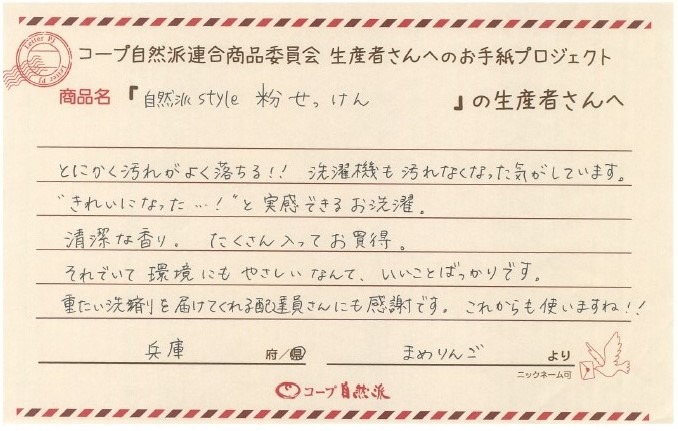 Letter Pj
コープ自然派連合商品委員会 生産者さんへのお手紙プロジェクト
商品名『自然派style 粉せっけん』の生産者さんへ
とにかく汚れがよく落ちる!! 洗濯機も汚れなくなった気がしています。
"きれいになった…!"と実感できるお洗濯。
清潔な香り。 たくさん入ってお買得。
それでいて環境にもやさしいなんて、いいことばっかりです。
重たい洗剤を届けてくれる配達員さんにも感謝です。 これからも使いますね!!
兵庫 府/県 まめりんご より
ニックネーム可
コープ自然派